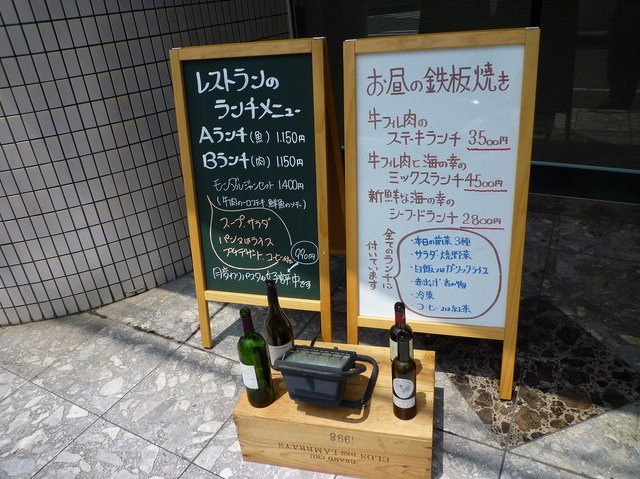 レストランの
ランチメニュー
Aランチ(魚) 1.150円
Bランチ(肉) 1150円
1.400円
スープ、サラダ
パンまたはライス
コーヒー
990円
日替わりパスタ
お昼の鉄板焼き
牛フィレ肉の
ステーキランチ 3500円
牛フィレ肉と海の幸の
ミックスランチ 4500円
新鮮な海の幸の
シーフードランチ 2800円
全てのランチに
付いています
・本日の前菜 3種
・サラダ・焼野菜
・白飯又はガーリックライス
・赤出汁・香の物
・冷菓
・コーヒー又は紅茶
1998
CLOS DES LAMBRAYS
GRAND CRU